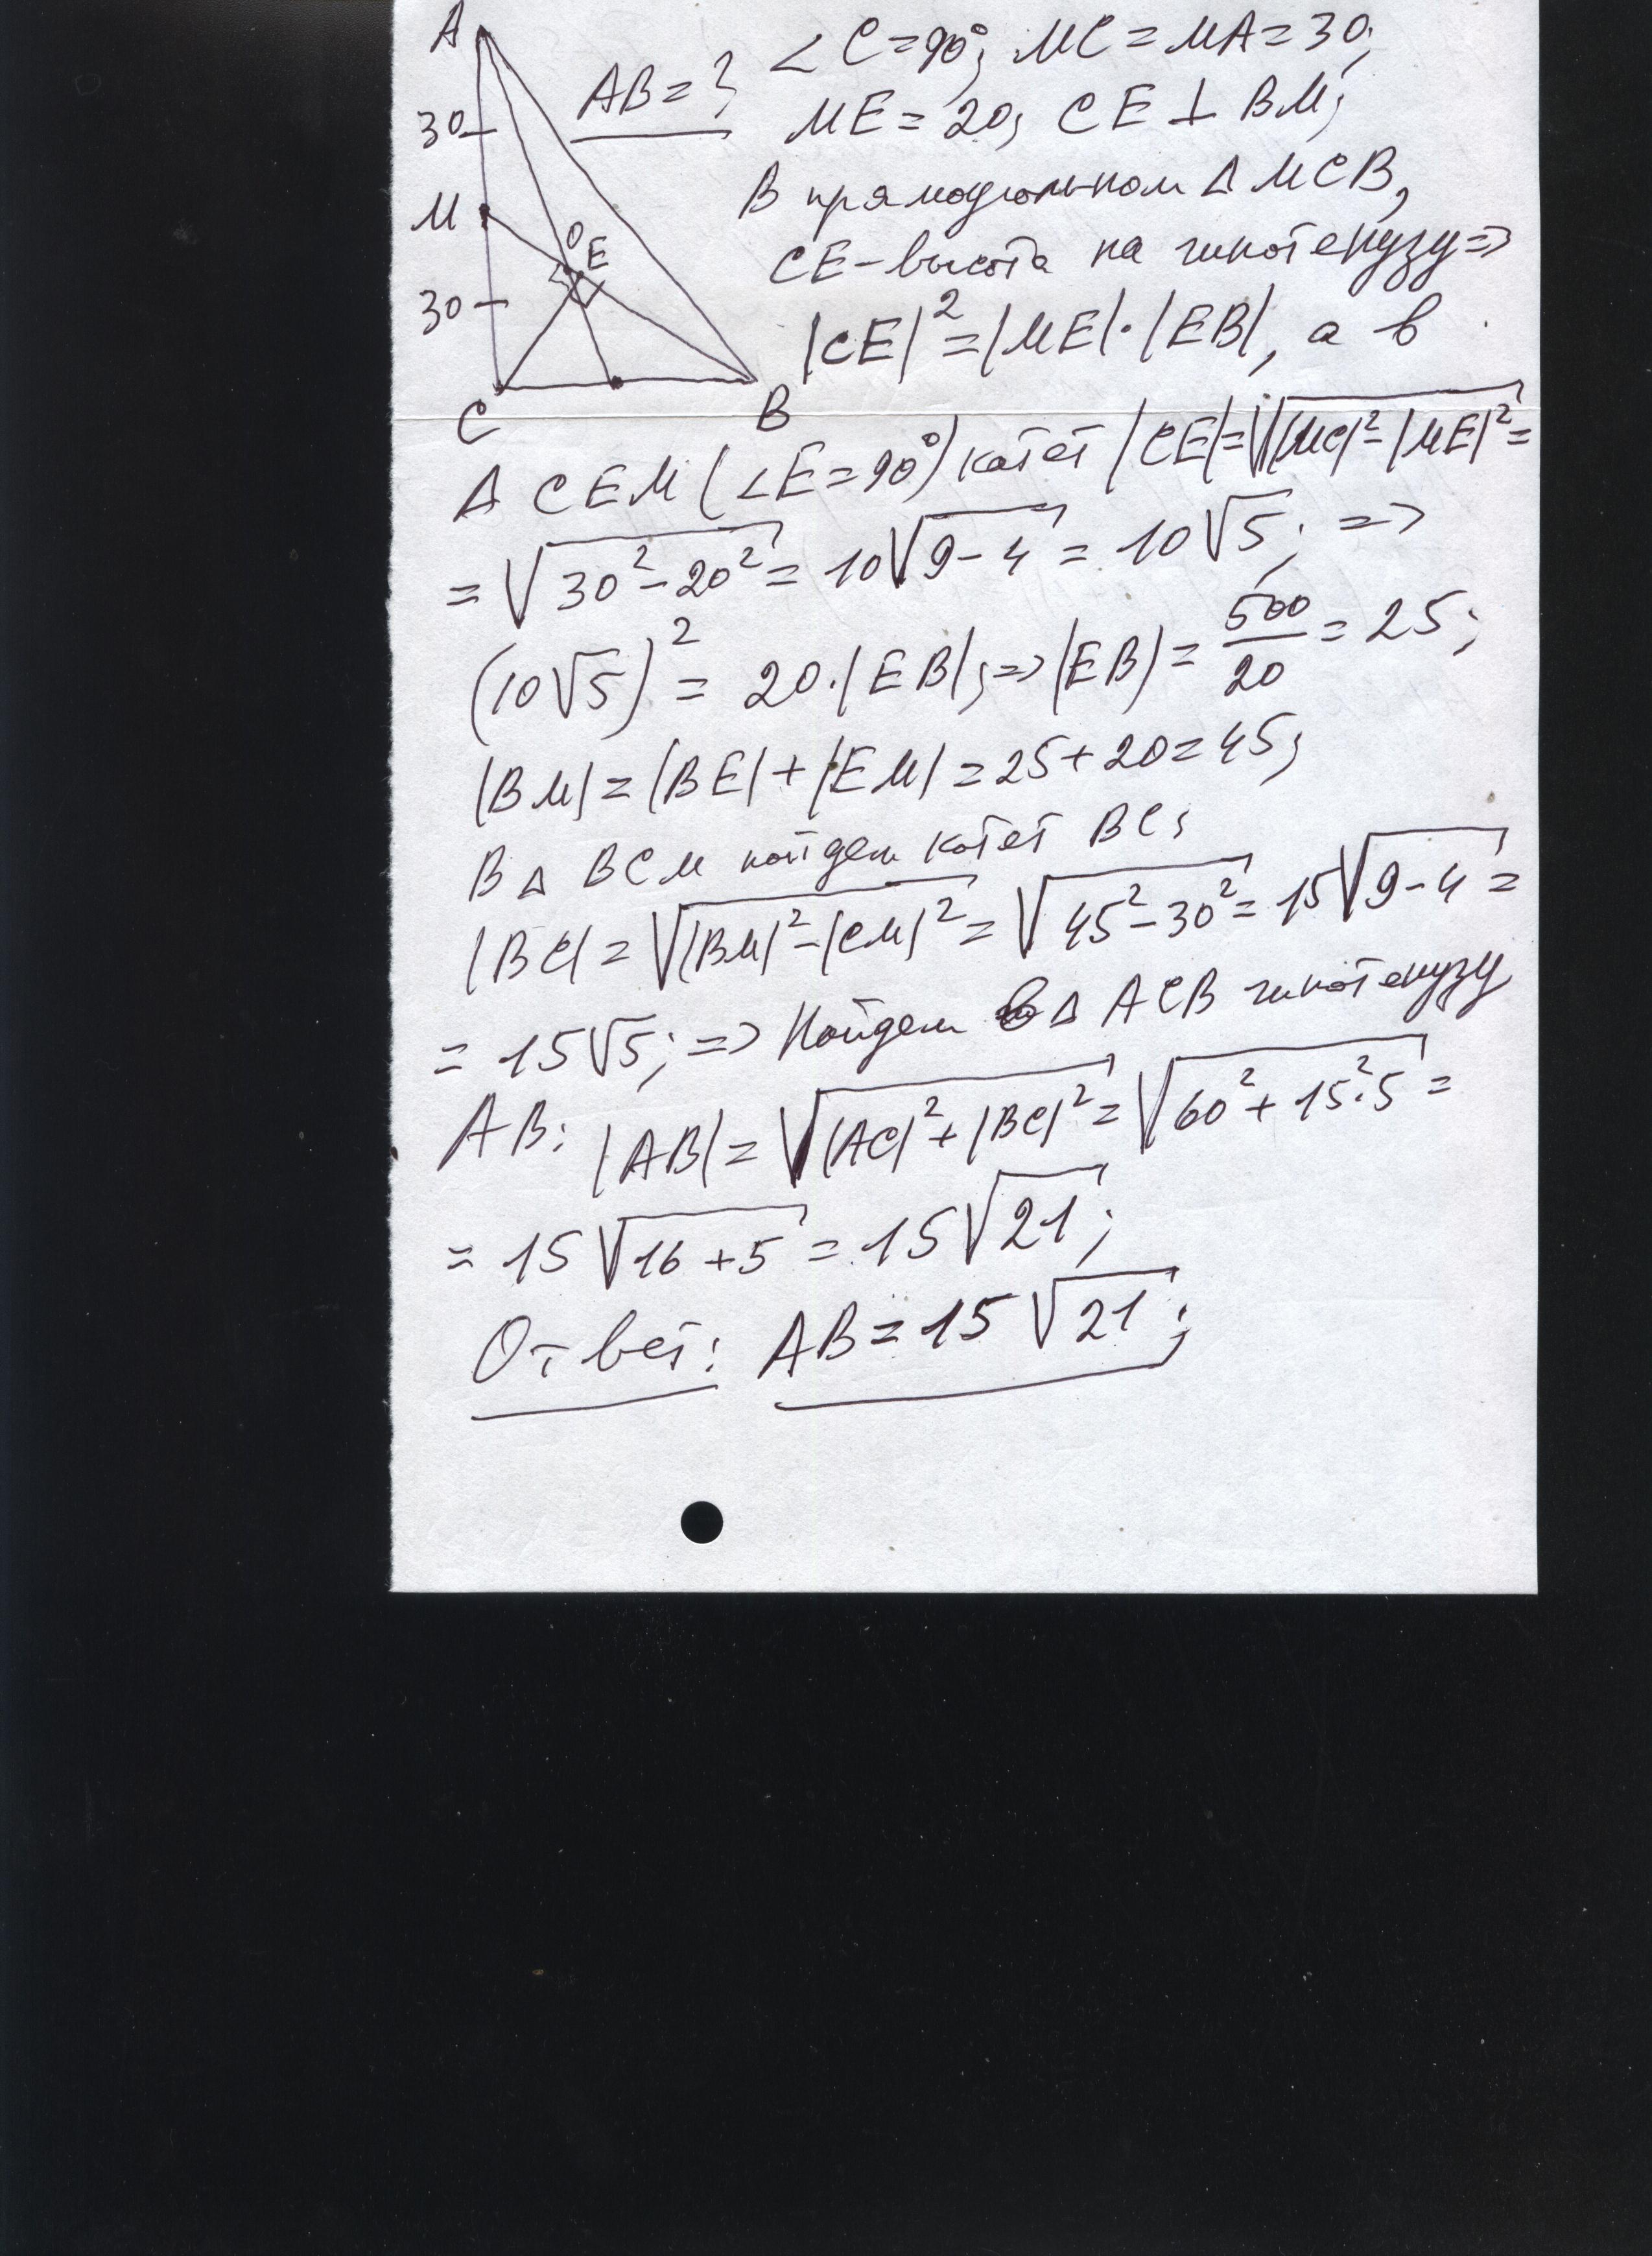 A
30
M
30
C
B
O
E
AB = ?
∠C=90°; MC = MA = 30;
ME = 20; CE ⊥ BM;
В прямоугольном Δ MCB,
CE – высота на гипотенузу =>
|CE|² = |ME|·|EB|, а в
Δ CEM (∠E = 90°) катет |CE| = √(|MC|² – |ME|²) =
= √(30² – 20²) = 10√(9 – 4) = 10√5; =>
(10√5)² = 20·|EB|; => |EB| = 500/20 = 25;
|BM| = |BE| + |EM| = 25 + 20 = 45;
В Δ BCM найдем катет BC;
|BC| = √(|BM|² – |CM|²) = √(45² – 30²) = 15√(9 – 4) =
= 15√5; => Найдем в Δ ACB гипотенузу
AB: |AB| = √(|AC|² + |BC|²) = √(60² + 15²·5) =
= 15√(16 + 5) = 15√21;
Ответ: AB = 15√21;